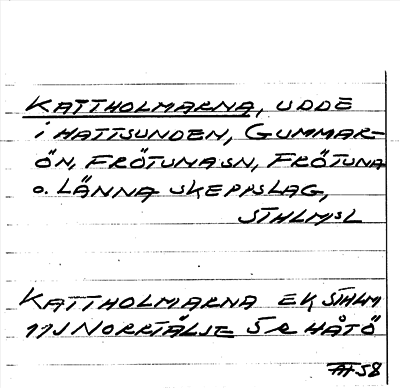 KATTHOLMARNA, UDDE
i HATTSUNDEN, GUMMAR-
ÖN, FRÖTUNA SN, FRÖTUNA
o. LÄNNA SKEPPSLAG,
STHLMS L
KATTHOLMARNA EK STHLM
11J NORRTÄLJE 5 R HÅTÖ
58